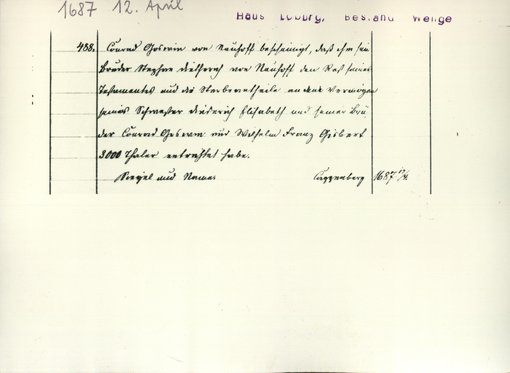 1687 12. April
Haus Loburg, Bestand Wenge
488. Conrad Goswin von Neuhoff bescheinigt, daß ihm sein
Bruder Stephan Dietherich von Neuhoff den Rest seines
Testamentes und die Sterbeantheile an dem Vermögen
seiner Schwester Diederich Elisabeth und seiner Brü
der Conrad Goswin und Wilhelm Franz Gisbert
3000 Thaler entrichtet habe.
Siegel und Namen
1687 12/4.